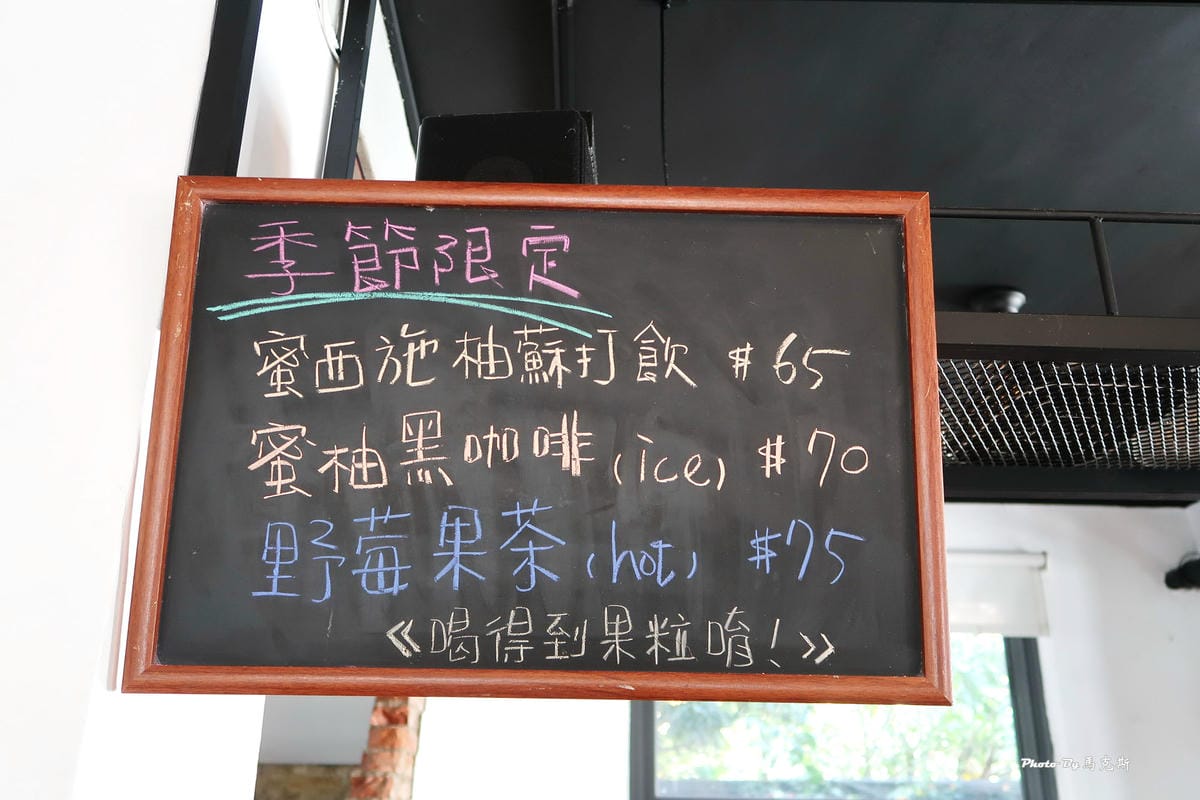 季節限定
蜜西施柚蘇打飲 $65
蜜柚黑咖啡(ice) $70
野莓果茶(hot) $75
《喝得到果粒唷!》
Photo By 馬克斯